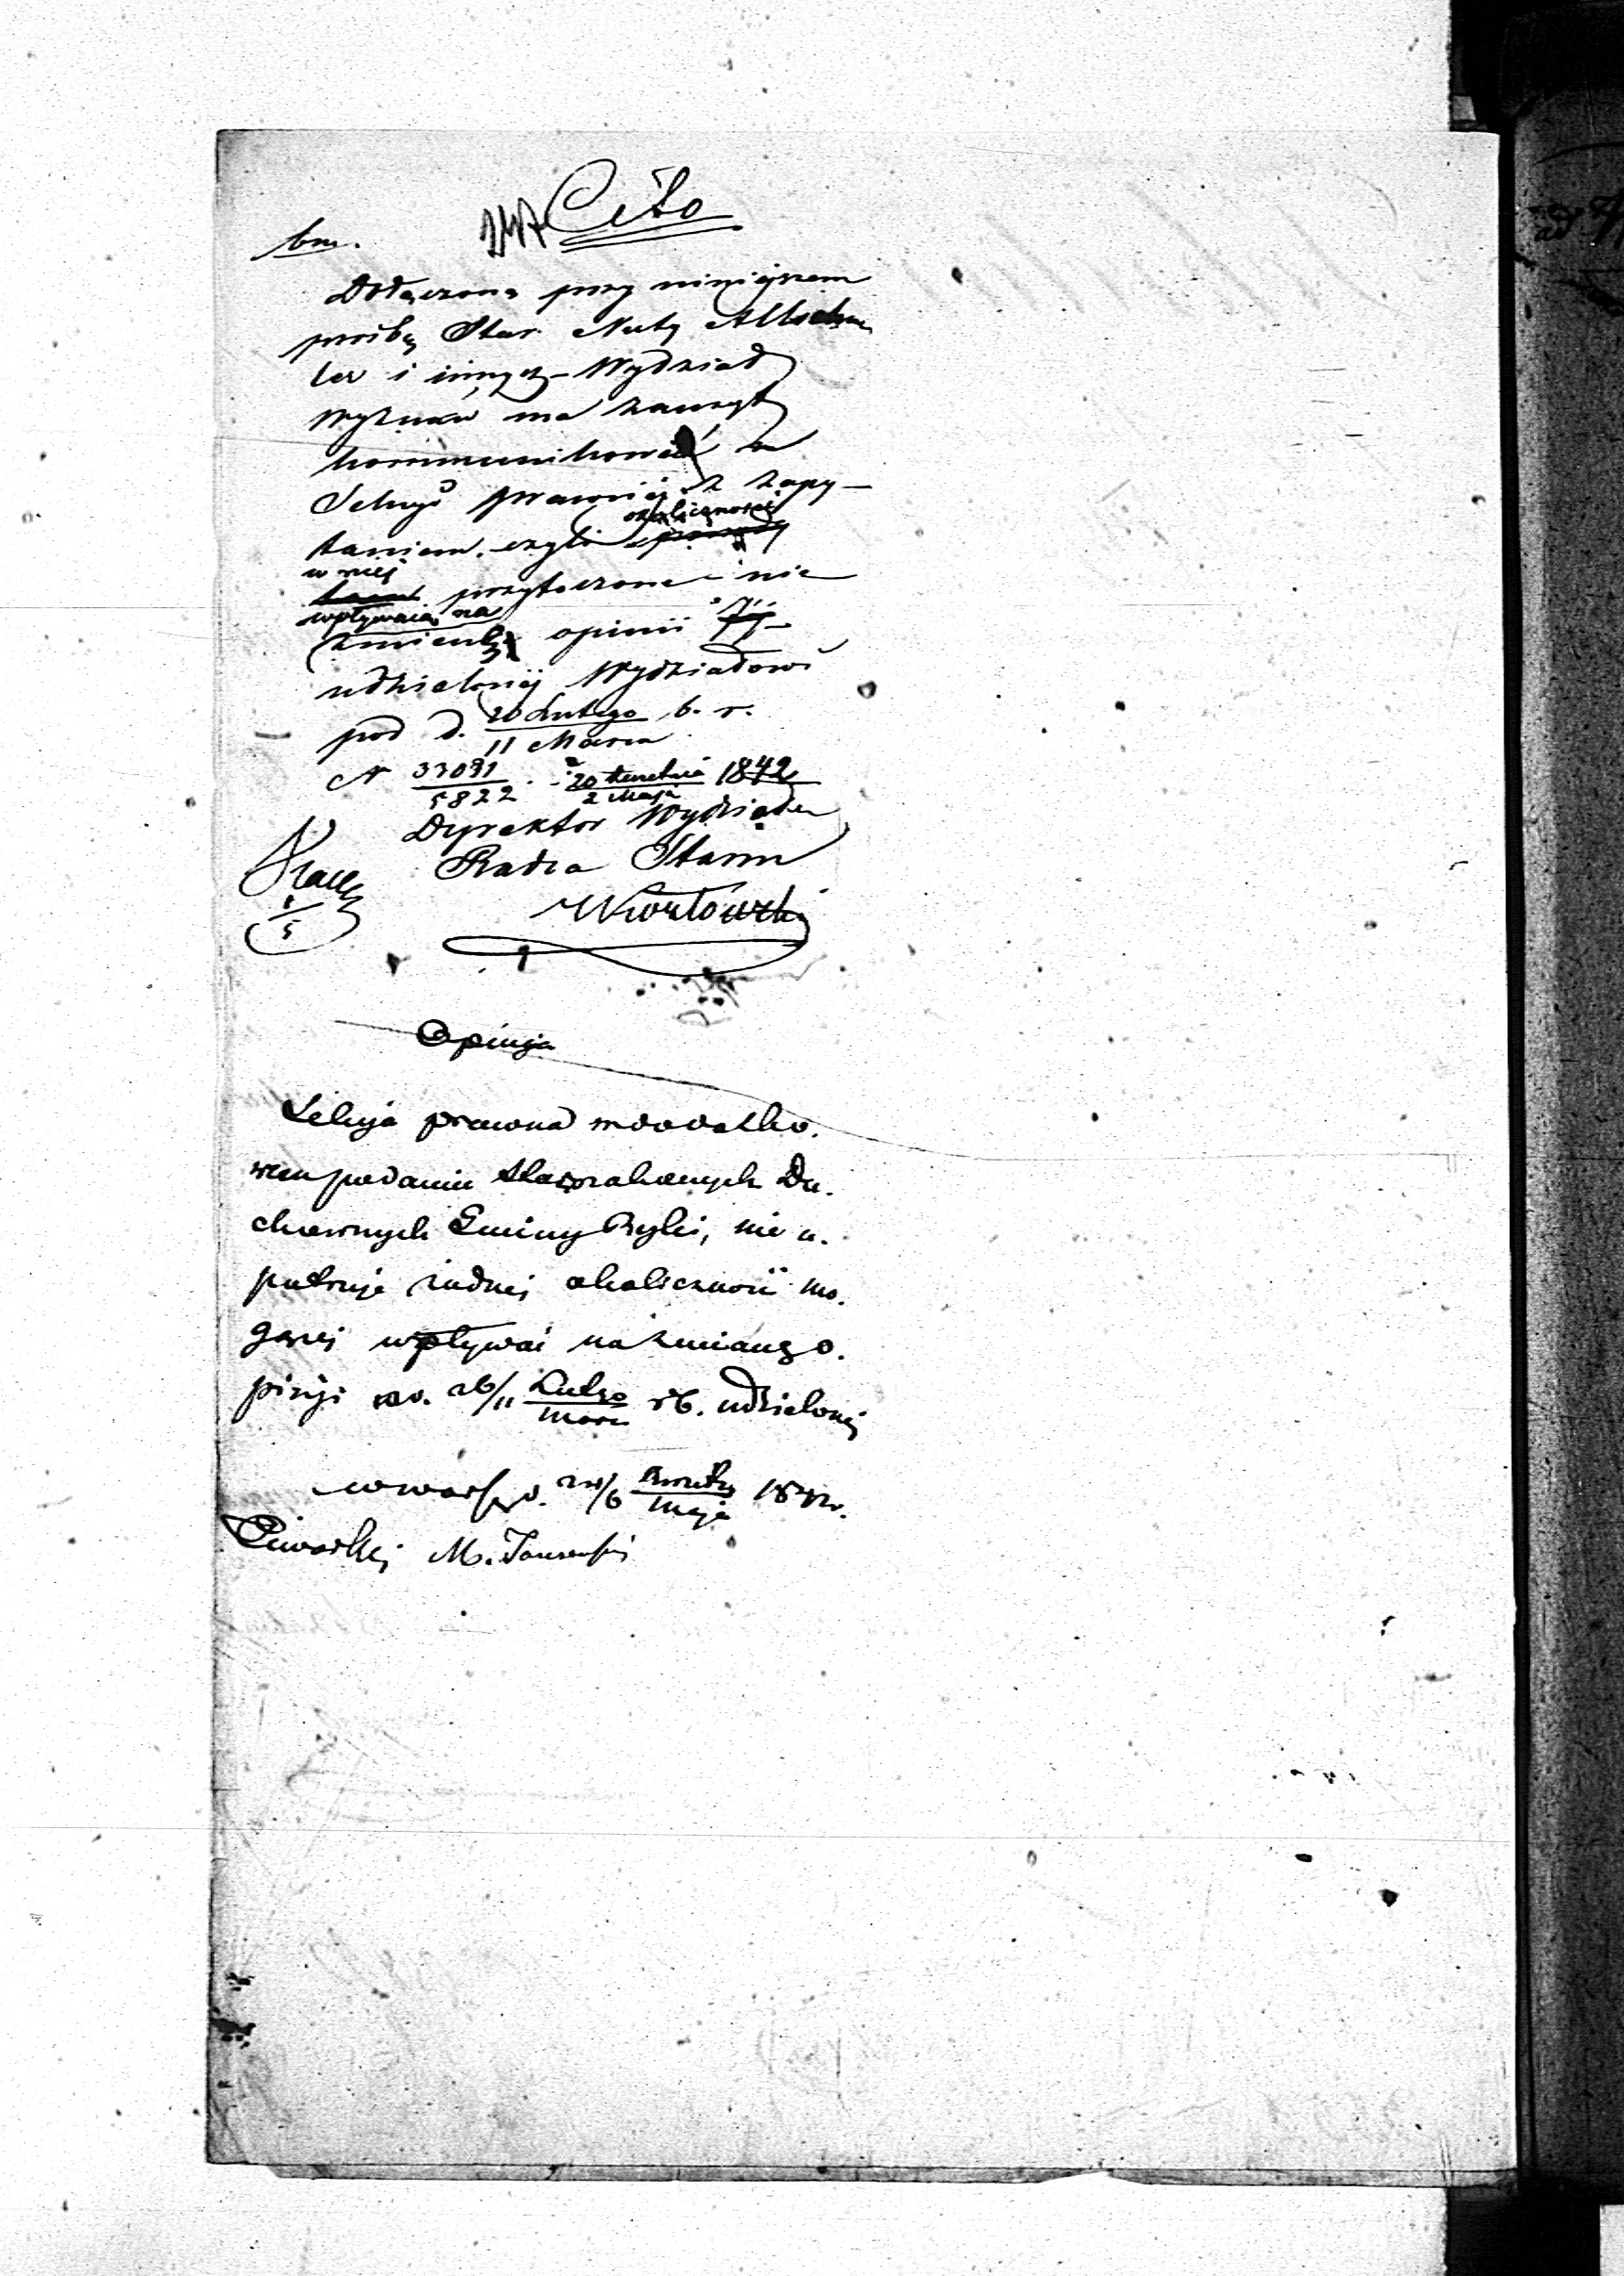 Cito
bm.
Dołączoną przy niniejszem
prośbę Star. Nuty Altschu
ler i innych Wydział
Wyznań ma zaszczyt
kommunikować
Sekcyi prawnéj z zapy-
taniem, czyli okoliczności
w niej przytoczone nie
wpływaią na
zmianę opinii Jéj
udzielonéj Wydziałowi
pod d. 26 Lutego b. r.
11 Marca
N 33091 20 Kwietnia 1842
5822 2 Maja
Dyrektor Wydziału
Radca Stanu
5
Opinja
Sekcja prawna w dodatko.
wem podaniu Starozakonnych Du.
chownych Gminy Ryki, nie u.
patruje żadnej okoliczności mo.
gącej wpływać na zmianę o.
pinji 26/11 Lutgo rb. udzielonej
Marca
w Warsz. d. Kwietn 1842r.
6 Maja